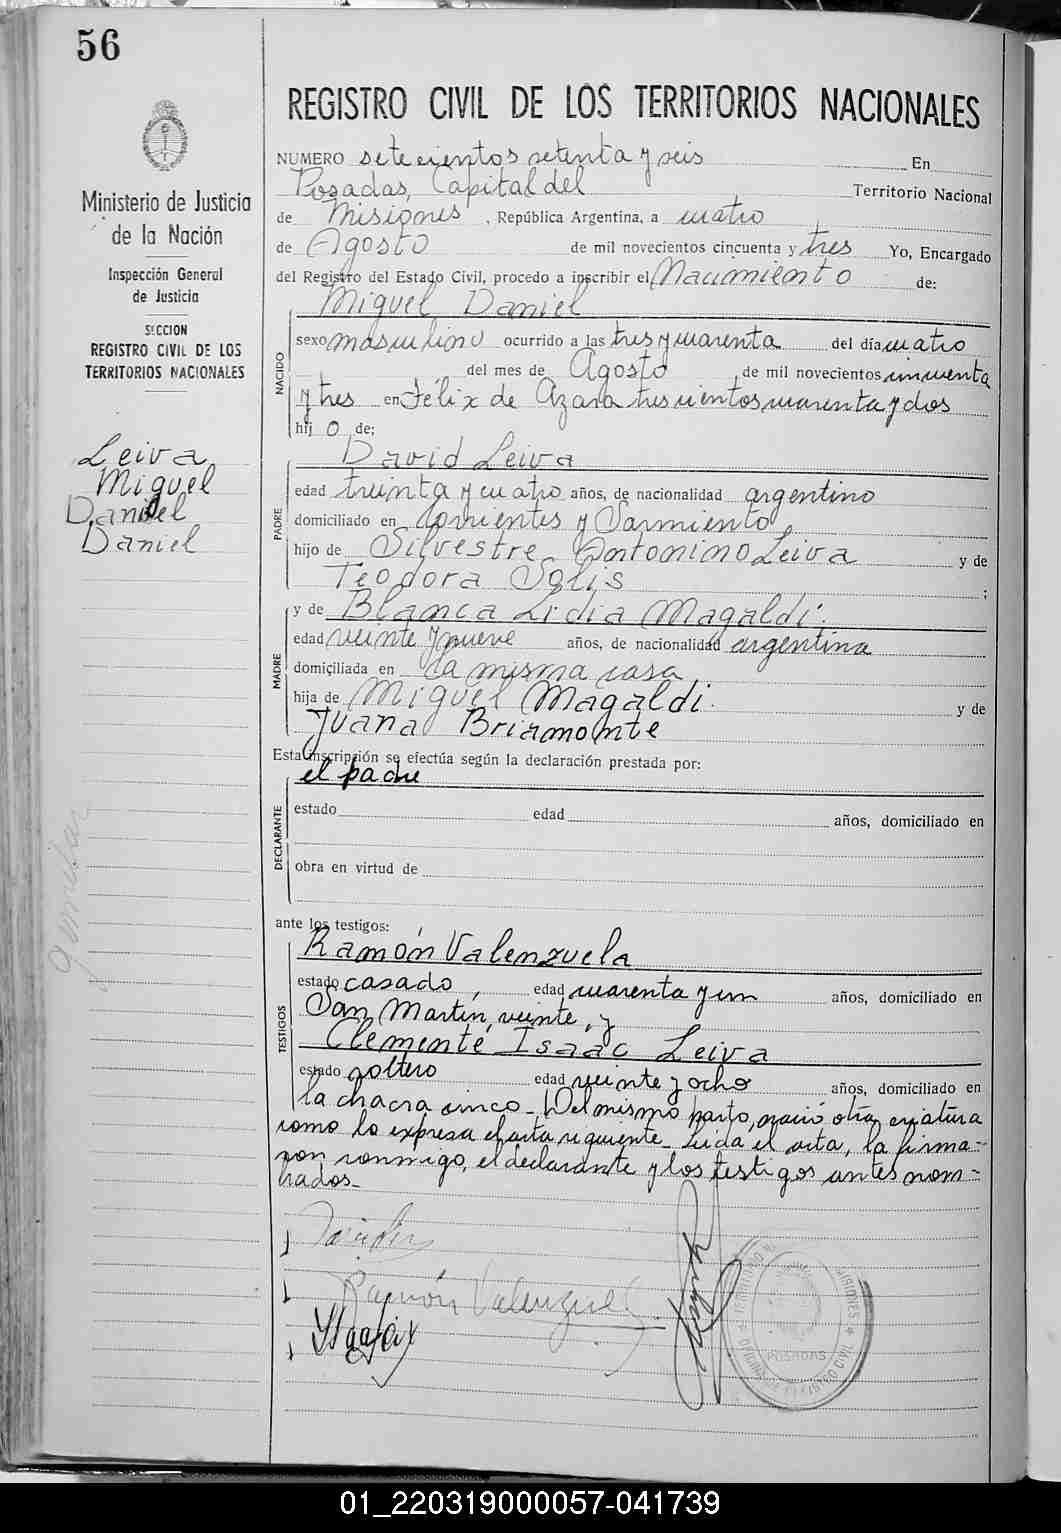 56
REGISTRO CIVIL DE LOS TERRITORIOS NACIONALES
Ministerio de Justicia
de la Nación
Inspección General
de Justicia
SECCION
REGISTRO CIVIL DE LOS
TERRITORIOS NACIONALES
Leiva
Miguel
Daniel
Daniel
NUMERO setecientos setenta y seis En
Posadas, Capital del Territorio Nacional
de Misiones, República Argentina, a cuatro
de Agosto de mil novecientos cincuenta y tres Yo, Encargado
del Registro del Estado Civil, procedo a inscribir el Nacimiento de:
Miguel Daniel
NACIDO
sexo masculino ocurrido a las tres y cuarenta del día cuatro
del mes de Agosto de mil novecientos cincuenta
y tres en Félix de Azara trescientos cuarenta y dos
hijo de:
David Leiva
PADRE
edad treinta y cuatro años, de nacionalidad argentino
domiciliado en Corrientes y Sarmiento
hijo de Silvestre Antonino Leiva y de
Teodora Solis ;
y de Blanca Lidia Magaldi.
MADRE
edad veinte y nueve años, de nacionalidad argentina
domiciliada en la misma casa
hija de Miguel Magaldi. y de
Juana Briamonte
Esta inscripción se efectúa según la declaración prestada por:
el padre
DECLARANTE
estado edad años, domiciliado en
obra en virtud de
ante los testigos:
Ramón Valenzuela
TESTIGOS
estado casado, edad cuarenta y un años, domiciliado en
San Martín, veinte, y
Clemente Isaac Leiva
estado soltero edad veinte y ocho años, domiciliado en
la chacra cinco_ Del mismo parto, nació otra criatura
como lo expresa el acta siguiente_ Leida el acta, la firma=
ron conmigo, el declarante y los testigos antes nom=
brados_
Ramón Valenzuela
POSADAS
01_220319000057-041739